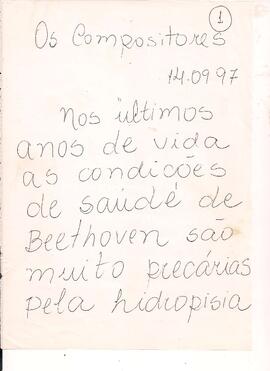 1
Os Compositores
14.09.97
Nos últimos
anos de vida
as condições
de saúdé de
Beethoven são
muito precárias
pela hidropisia